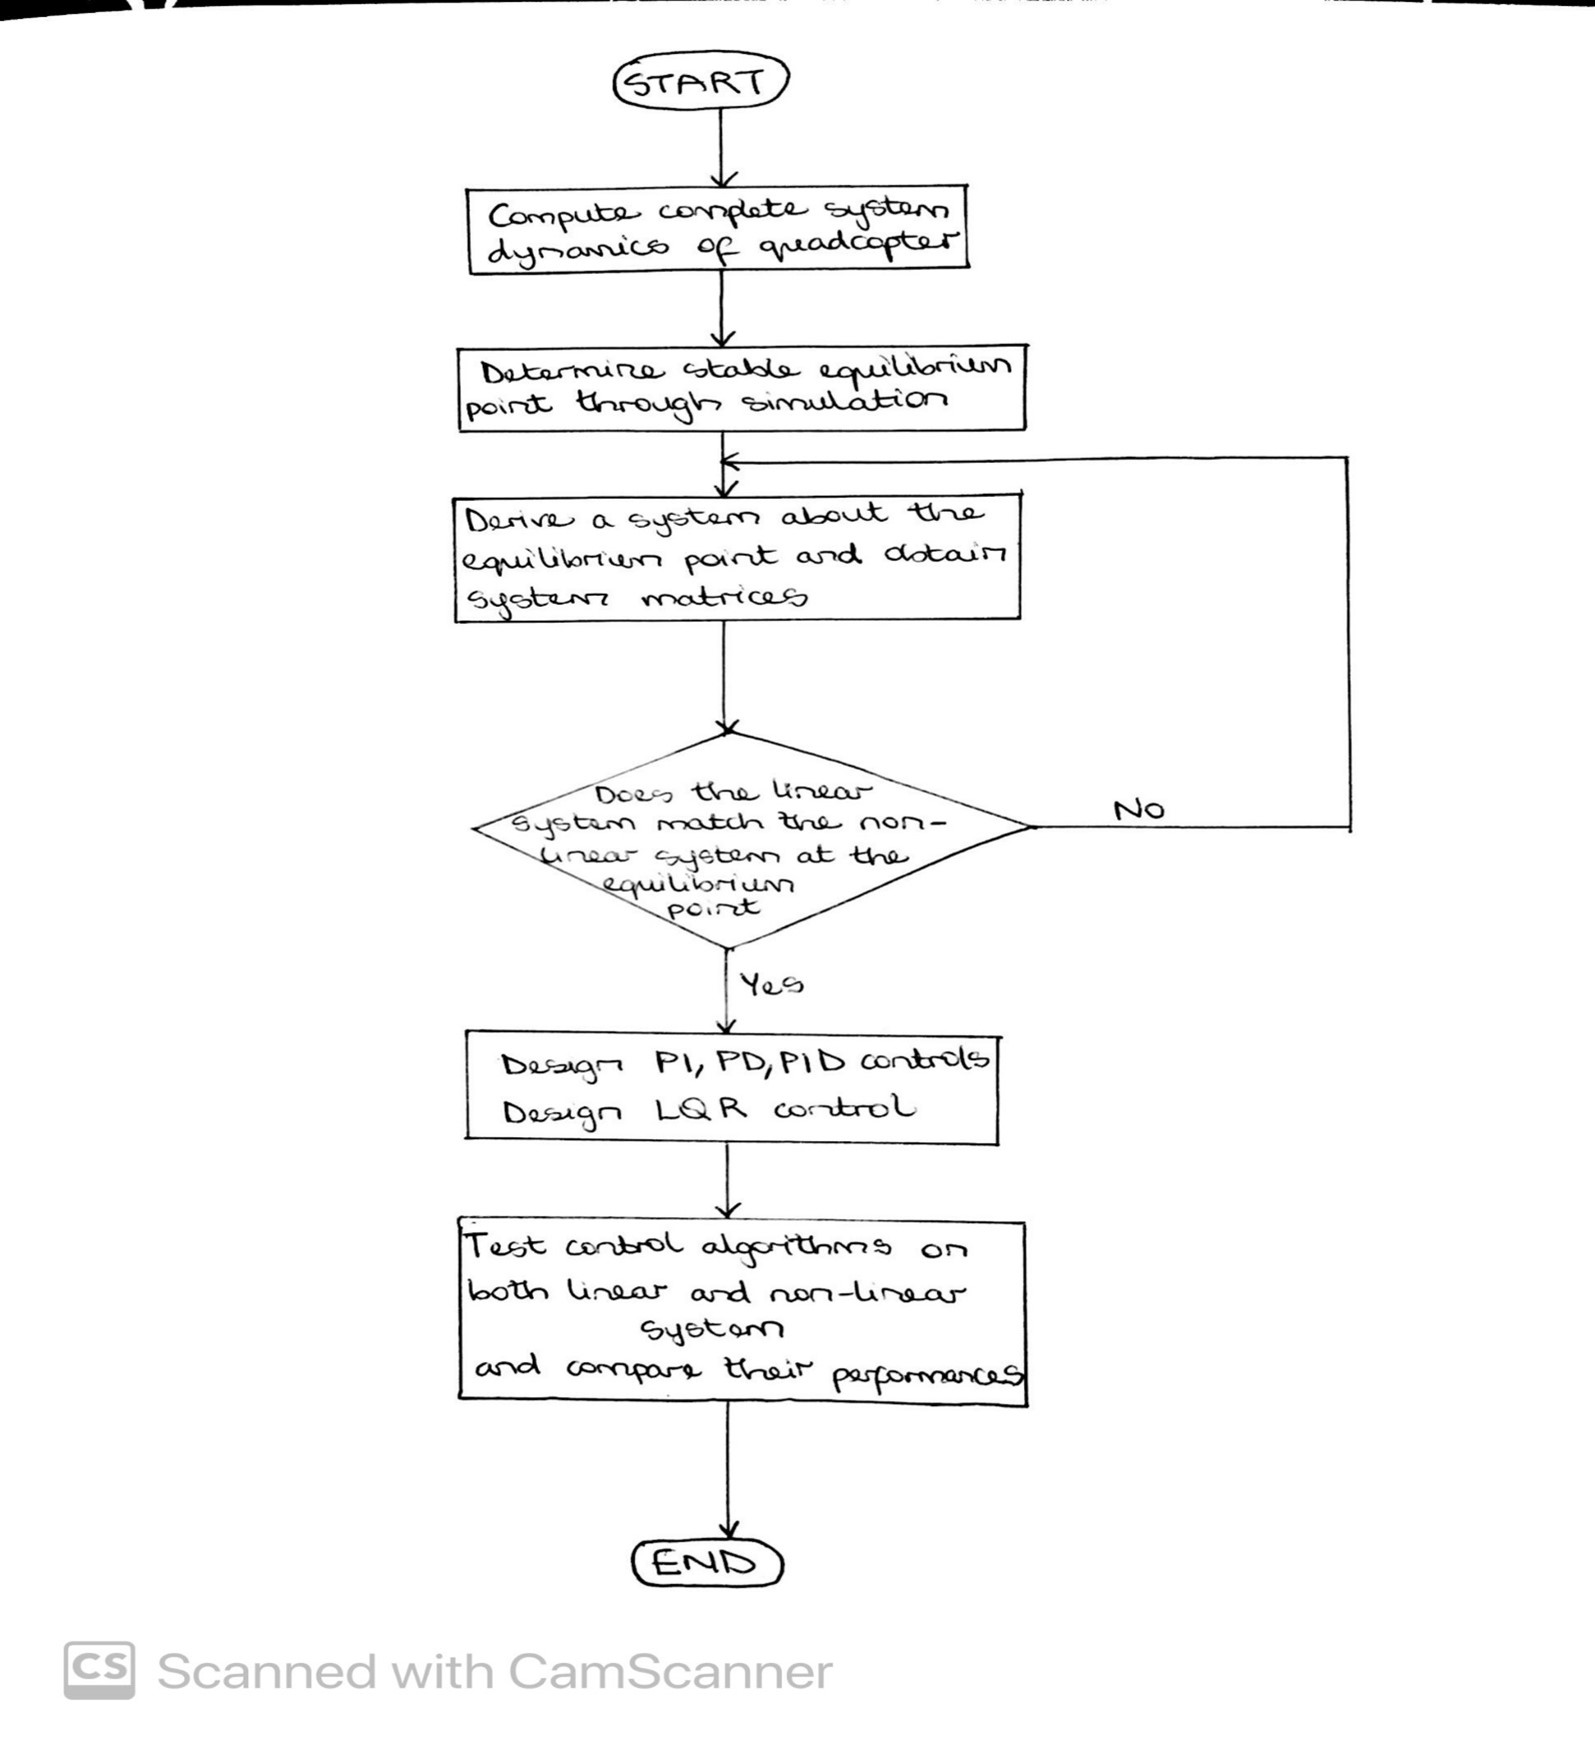 START
Compute complete system
dynamics of quadcopter
Determine stable equilibrium
point through simulation
Derive a system about the
equilibrium point and obtain
system matrices
Does the linear
system match the non-
linear system at the
equilibrium
point
No
Yes
Design PI, PD, PID controls
Design LQR control
Test control algorithms on
both linear and non-linear
system
and compare their performances
END
CS Scanned with CamScanner